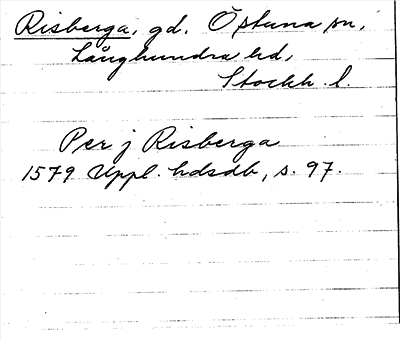 Risberga, gd. Östuna sn,
Långhundra hd,
Stockh. l.
Per j Risberga
1579 Uppl. hdsdb, s. 97.